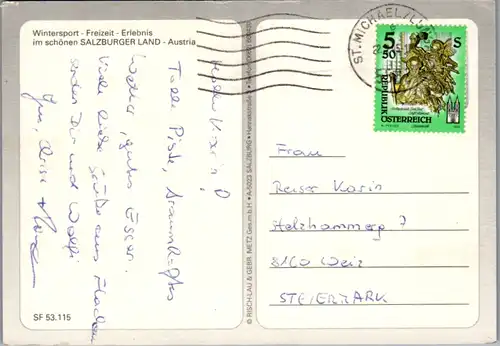 Wintersport - Freizeit - Erlebnis
im schönen SALZBURGER LAND - Austria
Hallo Karin!
Tolle Piste, traumhaftes
Wetter, gutes Essen.
Viele liebe Grüße aus
senden Dir und Wolfi
SF 53.115
© RISCH-LAU & GEBR. METZ Ges.m.b.H. • A-5023 SALZBURG •
ST. MICHAEL/LU
5 50
S
REPUBLIK
ÖSTERREICH
Frau
Reiser Karin
Holzhammerg 7
8160 Weiz
STEIERMARK